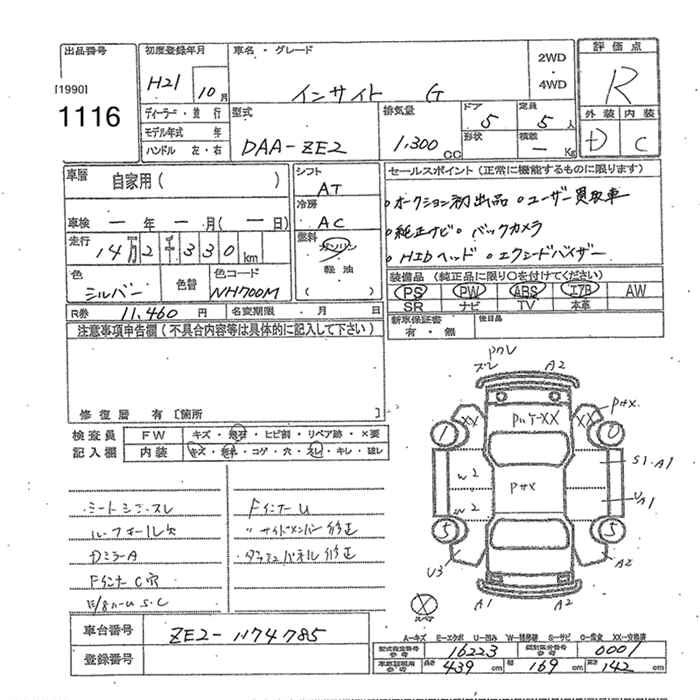 出品番号
[1990]
1116
初度登録年月
H21 10月
ディーラー・並行
モデル年式 年
ハンドル 左・右
車名・グレード
インサイト G
2WD
・
4WD
型式
DAA-ZE2
排気量
1.300 CC
ドア
5
定員
5人
形状
積載
- Kg
評価点
R
外装 内装
D C
車歴
自家用( )
車検 一年 一月(一日)
走行
14万2千330km
色
シルバー
色替
色コード
NH700M
シフト
AT
冷房
AC
燃料
ガソリン
軽油
( )
R券 11,460円
名変期限 ・月 日
セールスポイント(正常に機能するものに限ります)
○オークション初出品 ○ユーザー買取車
○純正ナビ ○バックカメラ
○HIDヘッド ○エクシードバイザー
装備品(純正品に限り○を付けてください)
PS PW ABS エアB AW
SR ナビ TV 本革
新車保証書
有・無
後日品
注意事項申告欄(不具合内容等は具体的に記入して下さい)
修復歴 有〔箇所 〕
検査員
記入欄
FW キズ・飛石・ヒビ割・リペア跡・×要
内装 キズ・汚れ・コゲ・穴・スレ・キレ・ヨレ
シートシミ・スレ
ルーフモール欠
DミラーA
FインナーC穴
FインナーU
〃サイドメンバー修正
車台番号 ZE2-1174785
登録番号
Pクレ
スレ
A2
XX
XX
P#X
1
0
W2
W2
P#X
S1.A1
UA1
5
5
U3
A2
A1
A2
スペア
A-キズ E-エクボ U-凹み W-補修跡 S-サビ C-腐食 XX-交換済
型式指定番号
参考
16223
類別区分番号
参考
0001
長さ 439cm
幅 169cm
高さ 142cm